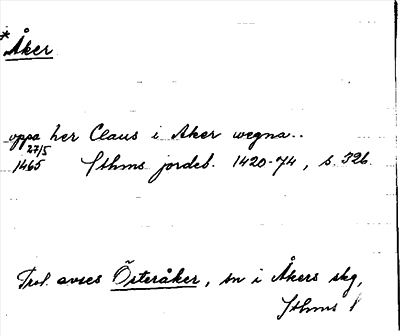 * Åker
uppa her Claus i Aker wegna..
27/5
1465 Sthms jordeb. 1420-74, s. 326.
Trol. avses Österåker, sn i Åkers skg,
Sthms l